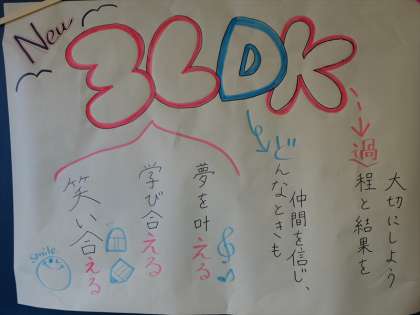 New
3LDK
笑い合える
学び合える
夢を叶える
どんなときも
仲間を信じ、
過程と結果を
大切にしよう
Smile